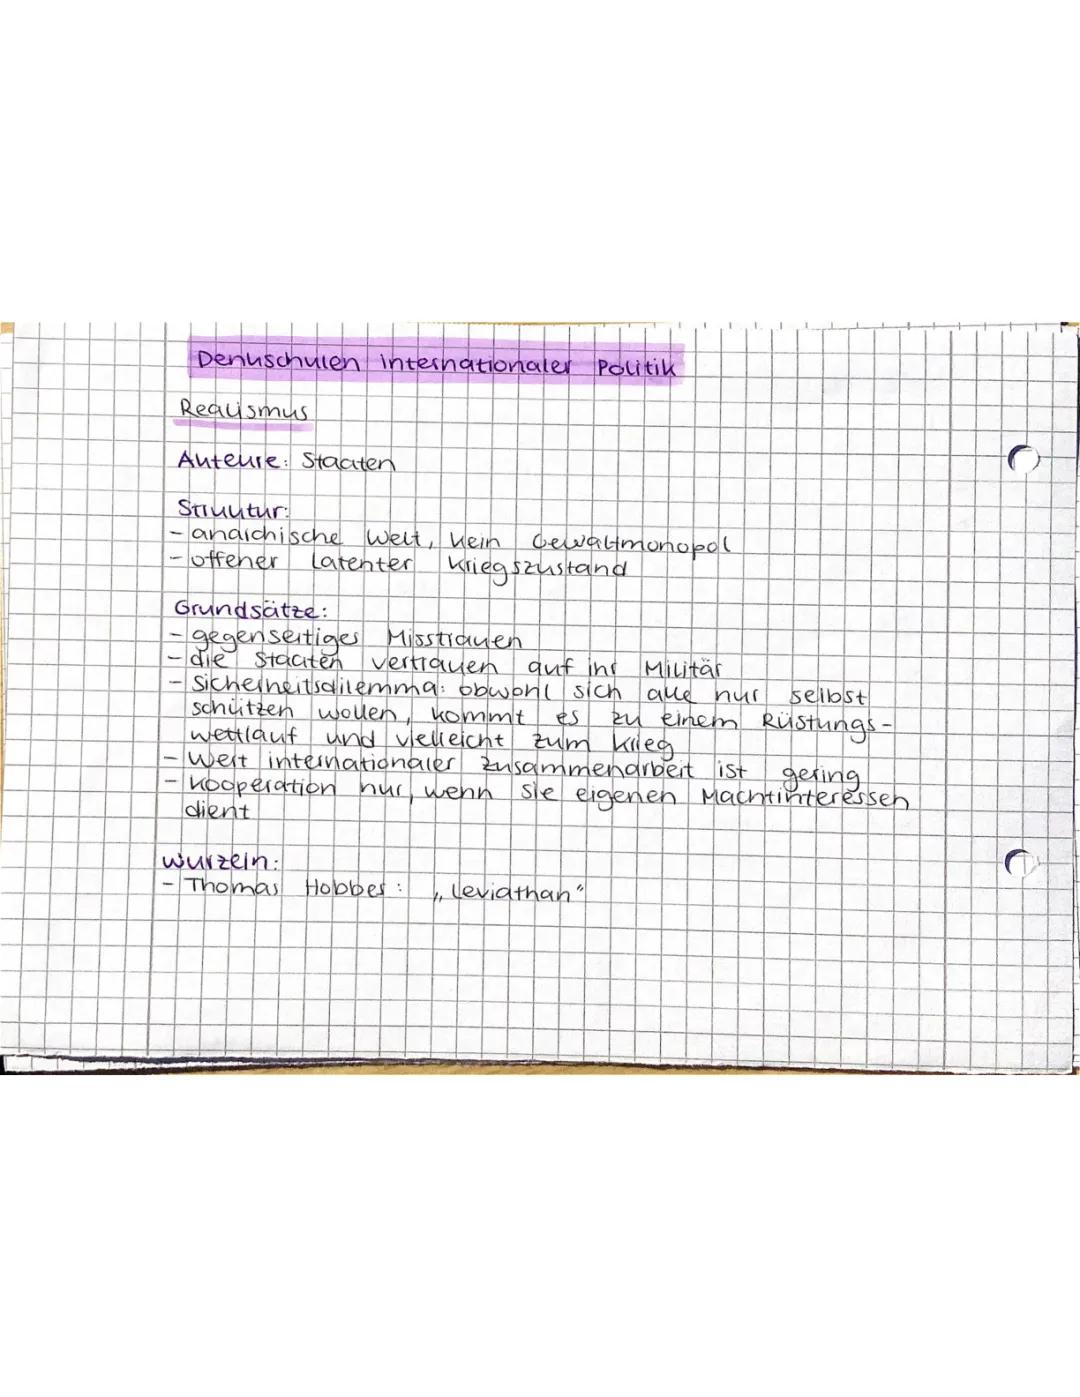 Denkschulen internationaler Politik
Realismus
Akteure: Staaten
Struktur:
- anarchische Welt, kein Gewaltmonopol
- offener latenter Kriegszustand
Grundsätze:
- gegenseitiges Misstrauen
- die Staaten vertrauen auf ihr Militär
- Sicherheitsdilemma: obwohl sich alle nur selbst
schützen wollen, kommt es zu einem Rüstungs-
wettlauf und vielleicht zum Krieg
- Wert internationaler Zusammenarbeit ist gering
- Kooperation nur, wenn sie eigenen Machtinteressen
dient
Wurzeln:
- Thomas Hobbes: „Leviathan“